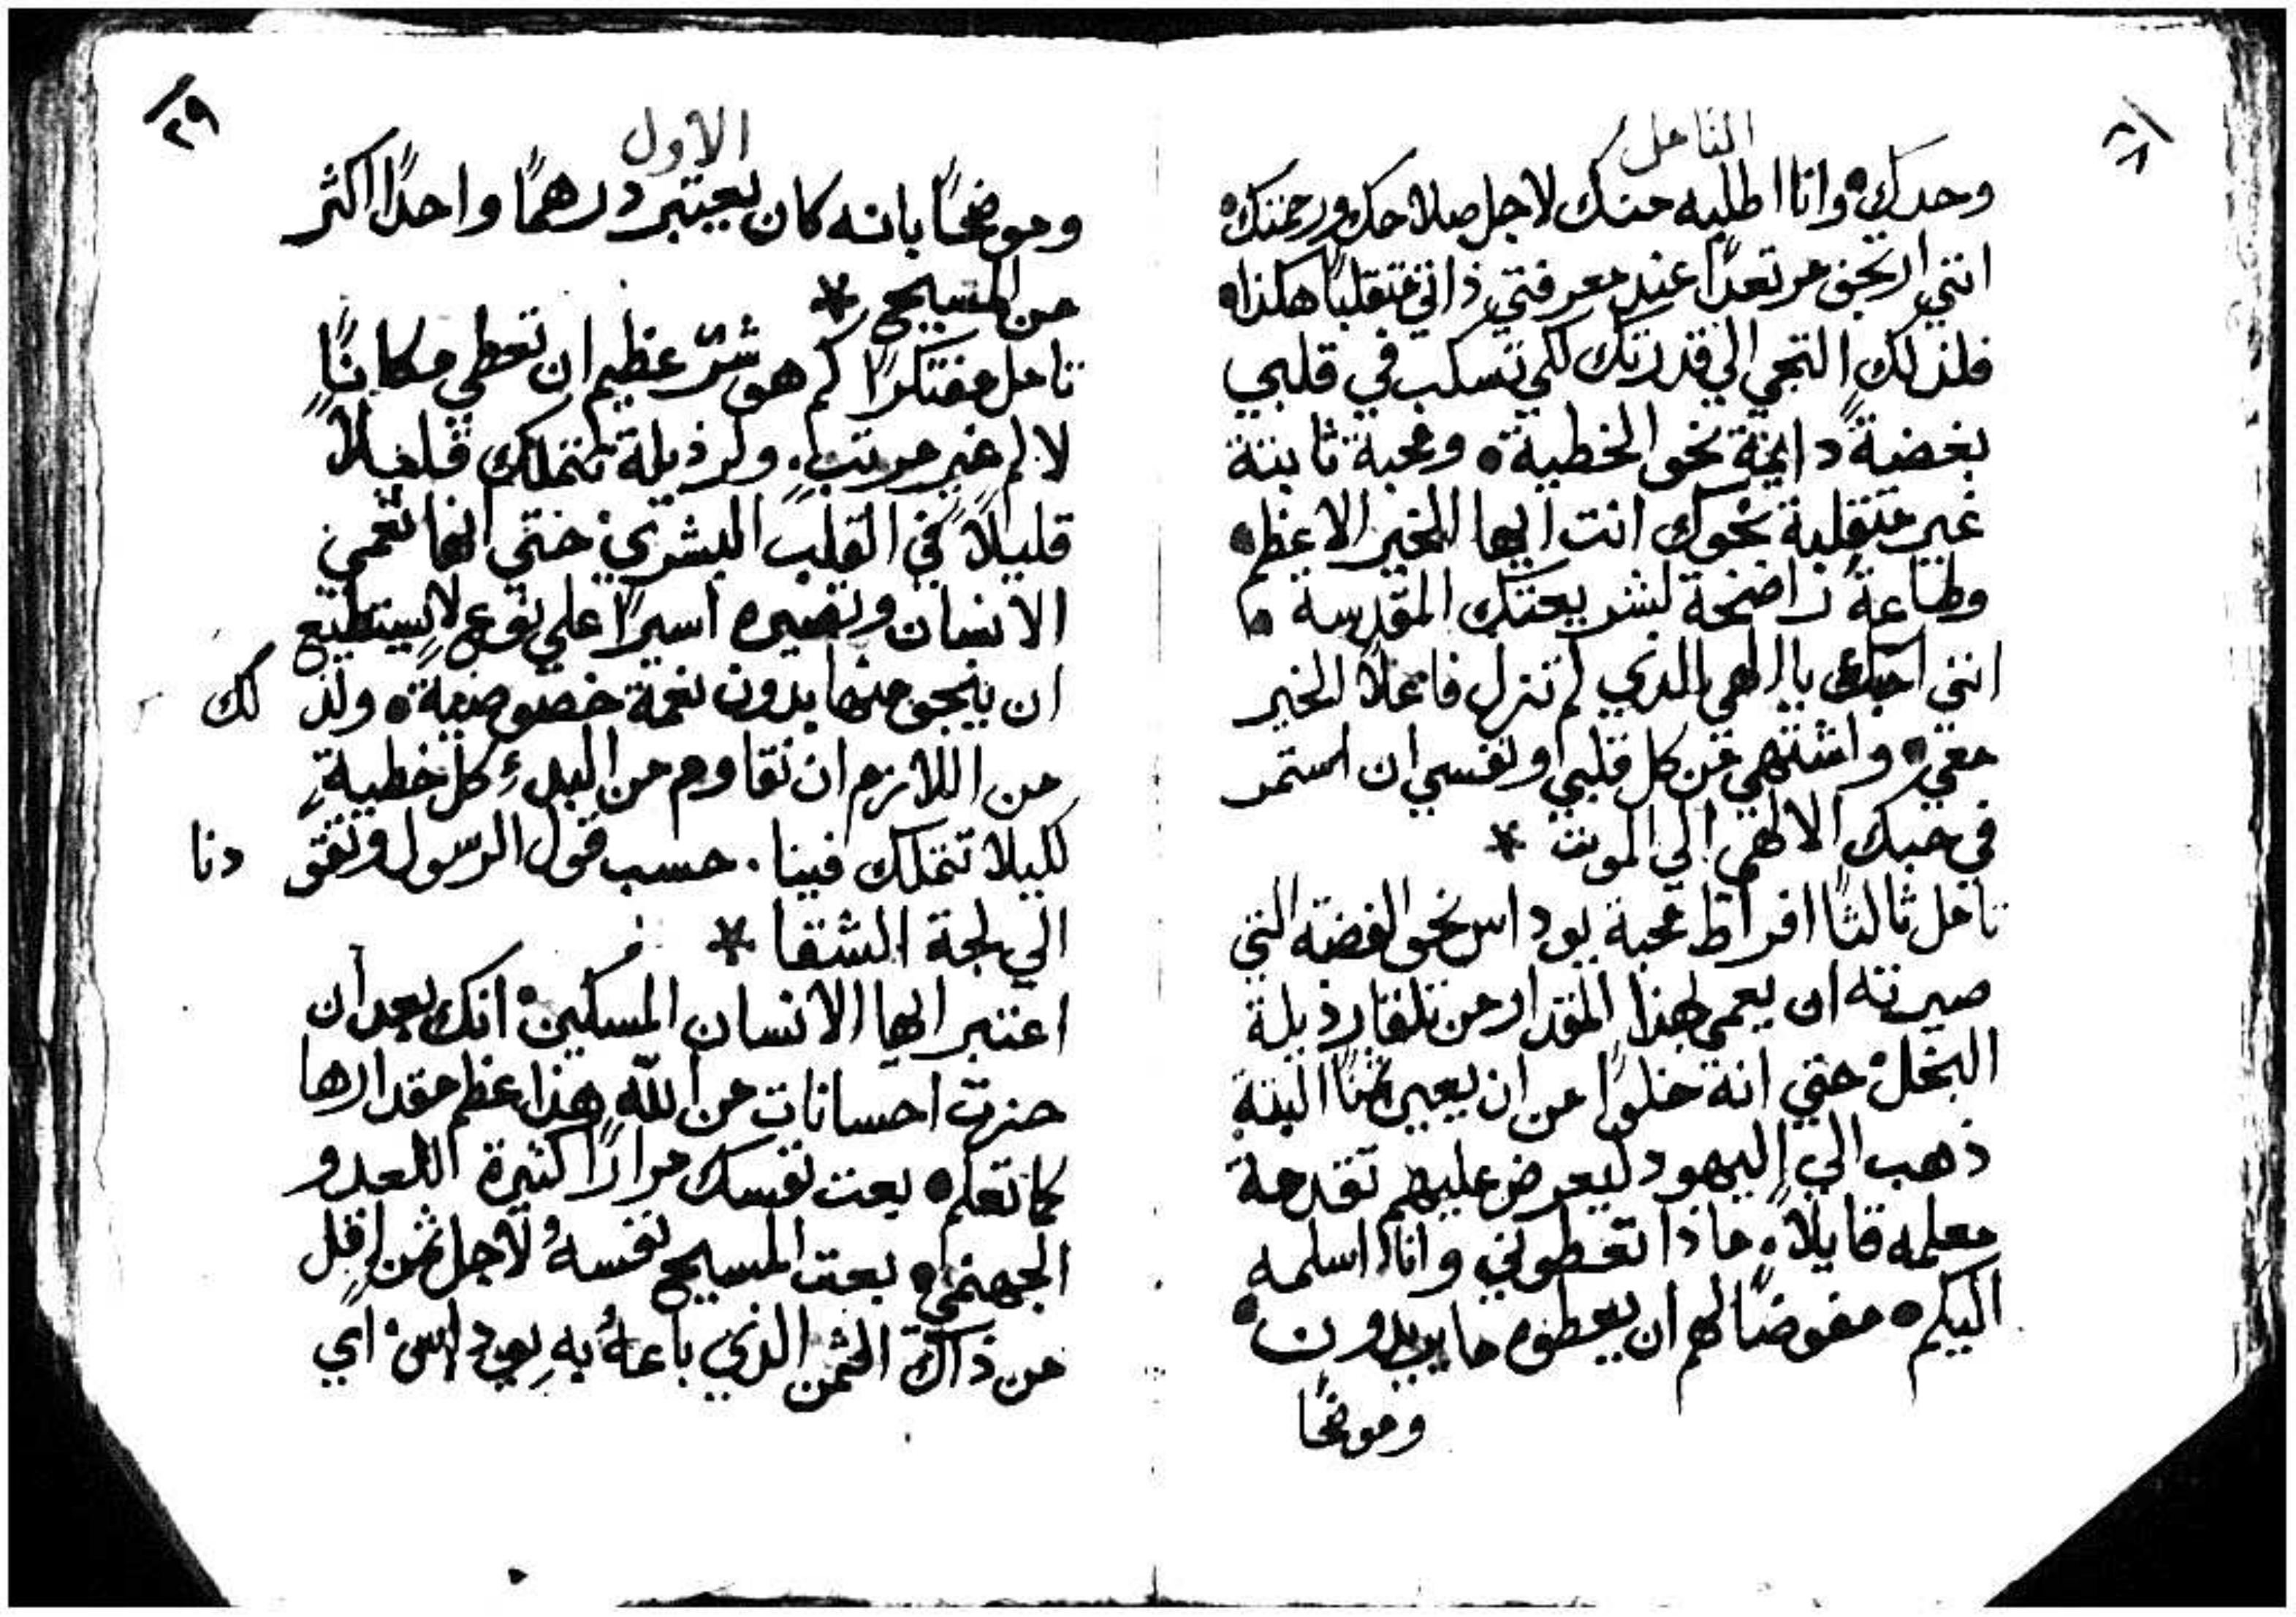 ٢٨
التامل
وحدك• وانا اطلبه منك لاجل صلاحك ورحمتك•
انني ارتجف مرتعدًا عند معرفتي ذاتي متقلبًا هكذا•
فلذلك التجي الي قدرتك لكي تسكب في قلبي
بغضةً دايمة نحو الخطية• ومحبة ثابتة
غير متقلبة نحوك انت ايها الخير الاعظم•
وطاعة راضخة لشريعتك المقدسة•
انني احبك يا الهي الذي لم تزل فاعلًا الخير
معي• واشتهي من كل قلبي ونفسي ان استمر
في حبك الالهي الي الموت *
تامل ثالثًا افراط محبة يوداس نحو الفضة التي
صيرته ان يعمي لهذا المقدار من تلقا رذيلة
البخل• حتي انه خلوًا من ان يعين ثمنًا البتة
ذهب الي اليهود ليعرض عليهم تقدمة
معلمه قايلًا• ماذا تعطوني وانا اسلمه
اليكم• مفوضًا لهم ان يعطوه ما يريدون•
وموضحًا
٢٩
الاول
وموضحًا بانه كان يعتبر درهمًا واحدًا اكثر
من المسيح *
تامل مفتكرًا كم هو شرّ عظيم ان تعطي مكانًا
لالم غير مرتب. ولرذيلة تتملك قليلًا
قليلًا في القلب البشري• حتي انها تعمي
الانسان وتصيره اسيرًا علي نوع لا يستطيع
ان ينجو منها بدون نعمة خصوصية• ولذ لك
من اللازم ان نقاوم من البدءِ كل خطيةٍ
لكيلا تتملك فينا. حسب قول الرسول وتقو دنا
الي لجة الشقا *
اعتبر ايها الانسان المسكين• انك بعد ان
حزت احسانات من الله هذا عظم مقدارها
كما تعلم• بعت نفسك مرارًا كثيرة للعدو
الجهنمي• بعت المسيح نفسهُ لاجل ثمنٍ اقل
من ذاك الثمن الذي باعهُ بهِ يوداس• اي